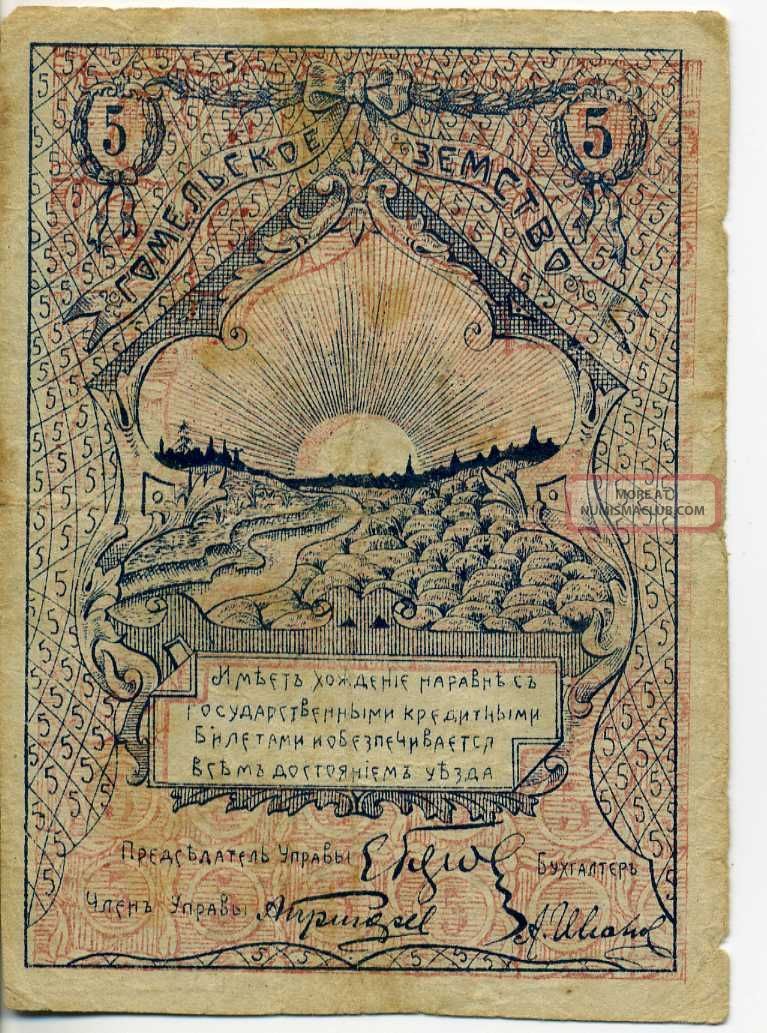 5 5
ГОМЕЛЬСКОЕ ЗЕМСТВО
MORE AT
NUMISMACLUB.COM
Имѣетъ хожденіе наравнѣ съ
государственными кредитными
билетами и обезпечивается
всѣмъ достояніемъ уѣзда
Предсѣдатель Управы
Бухгалтеръ
Членъ Управы
А. Иванов